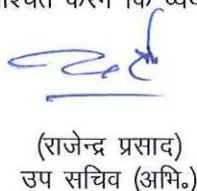 करने कि
(राजेन्द्र प्रसाद)
उप सचिव (अभि॰)